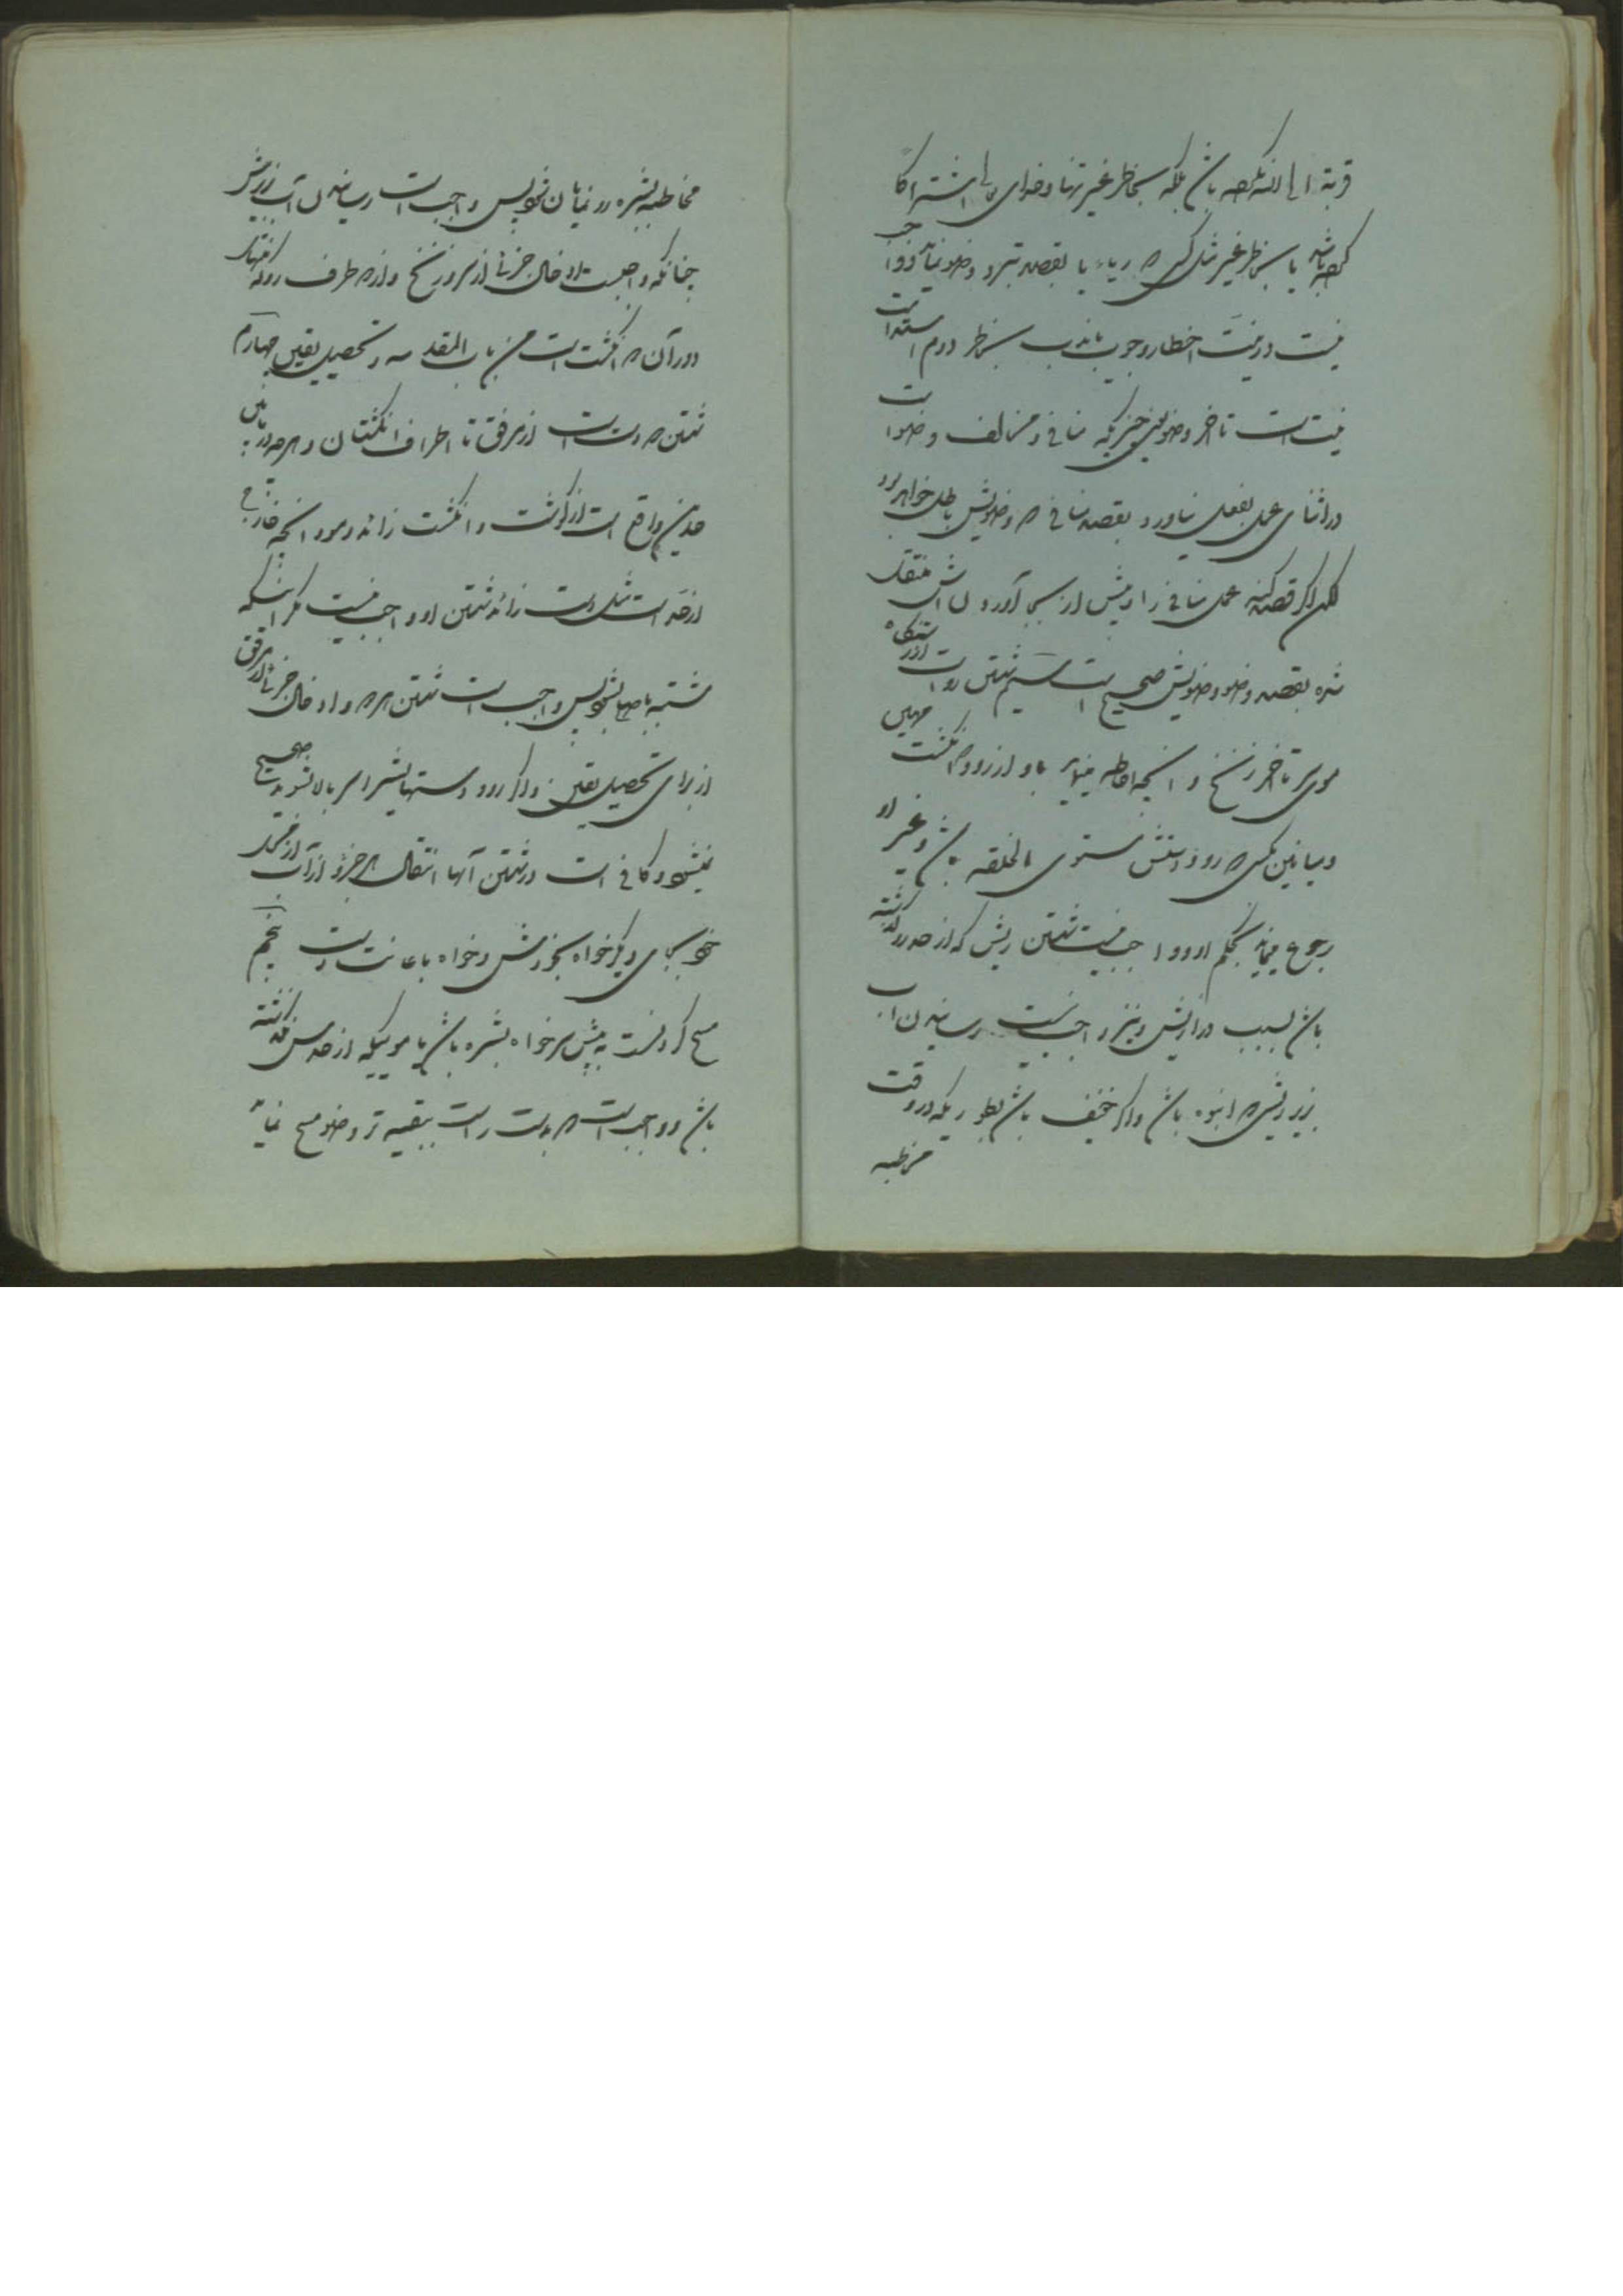 قربة الی الله نکرده باشد بلکه بخاطر غیر تنها و خدای تعالی اشتراکا
کرده باشد یا بخاطر غیر مثل کسی که ریاء یا بقصد تبرد وضو نماید و واجب
نیست در نیت اخطار وجوب یا ندب بخاطر دوم استدامت
نیت است تا آخر وضو یعنی چیزیکه منافی و مخالف وضو است
در اثنای عمل بفعل نیاورد بقصد منافی که وضویش باطل خواهد بود
لکن اگر قصد کند عمل منافی را و پیش از بجا آوردن اش منتقل
شده بقصد وضو وضویش صحیح است سیم شستن رو است از رستنگاه
موی سر تا آخر زنخ و آنچه احاطه مینماید باو از رو دو انگشت مهین
و میانین کسی که رو و دستش مستوی الخلقه باشد و غیر او
رجوع مینماید بحکم او و واجب نیست شستن ریش که از حد رو گذشته
باشد بسبب درازیش و نیز واجب نیست رسانیدن آب
زیر ریشی که انبوه باشد و اگر خفیف باشد بطوریکه در وقت
مخاطبه
مخاطبه بشره رو نمایان شود پس واجب است رسانیدن آب زیرش
چنانکه واجبست ادخال جزئی از سر و زنخ و از هر طرف رو که منتهای
دور آن دو انگشت است من باب المقدمه و تحصیل یقین چهارم
شستن دو دست است از مرفق تا اطراف انگشتان و هر چه در مابین
حدین واقع است از گوشت و انگشت زائد و مو و آنچه خارج
از حد است مثل دست زائد شستن او واجب نیست مگر اینکه
مشتبه باصلی شود پس واجب است شستن هر دو و ادخال جزئی از مرفق
از برای تحصیل یقین و اگر رو و دستهایش را سر بالا بشوید صحیح
نمیشود و کافی است در شستن آنها انتقال هر جزو از آب از محل
خود بجای دیگر خواه بخودش و خواه باعانت دست پنجم
مسح کردنست به پیش سر خواه بشره باشد یا موئیکه از حدش نگذشته
باشد و واجب است که بدست راست ببقیه تر وضو مسح نماید